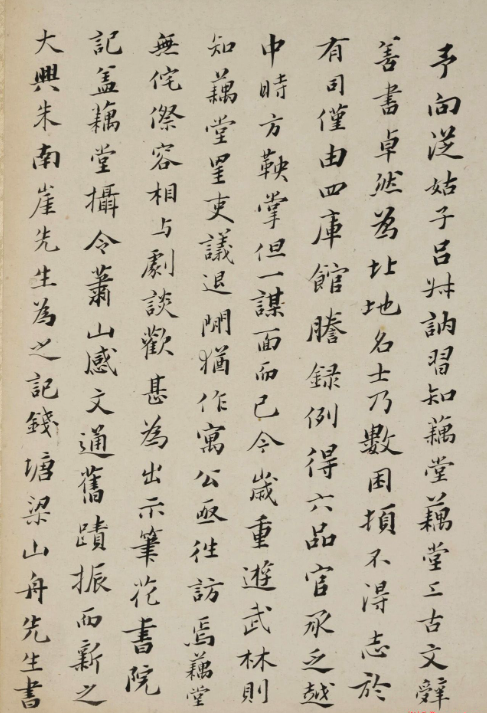 予向從姑子呂叔訥習知藕堂藕堂工古文辭
善書卓然為北地名士乃數困頓不得志於
有司僅由四庫館謄錄例得六品官承乏越
中時方鞅掌但一謀面而已今歲重遊武林則
知藕堂罣吏議退閒猶作寓公亟往訪焉藕堂
無侘傺容相与劇談歡甚為出示筆花書院
記盖藕堂攝令蕭山感文通舊蹟振而新之
大興朱南崖先生為之記錢塘梁山舟先生書